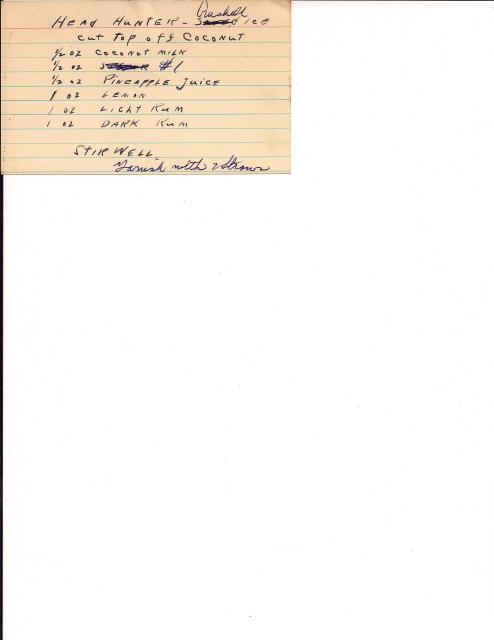 HEAD HUNTER - Crushed ICE
CUT TOP OFF COCONUT
1/2 OZ COCONUT MILK
1/2 OZ #1
1/2 OZ PINEAPPLE JUICE
1 OZ LEMON
1 OZ LIGHT RUM
1 OZ DARK RUM
STIR WELL
Garnish with 2 Straws